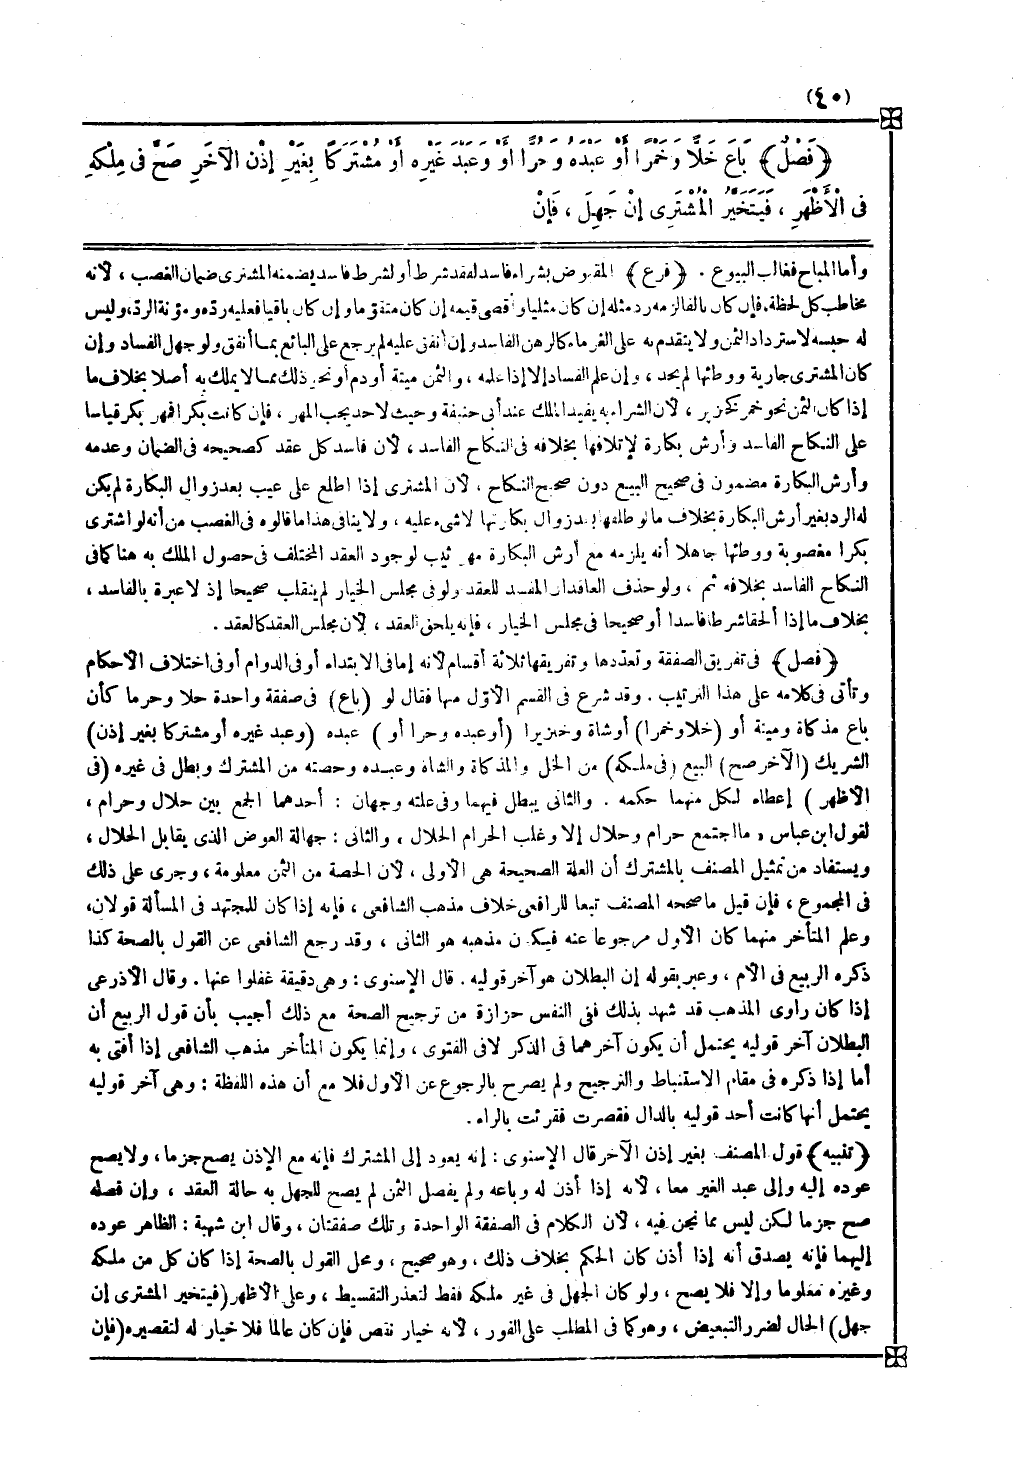 (٤٠)
﴿فَصْلٌ﴾ بَاعَ خَلًّا وَخَمْرًا أَوْ عَبْدَهُ وَحُرًّا أَوْ وَعَبْدَ غَيْرِهِ أَوْ مُشْتَرَكًا بِغَيْرِ إِذْنِ الْآخَرِ صَحَّ فى مِلْكِهِ
فى الْأَظْهَرِ ، فَيَتَخَيَّرُ الْمُشْتَرِى إِنْ جَهِلَ ، فَإِنْ
وأما المباح فغالب البيوع . ﴿فرع﴾ المقبوض بشراء فاسد لفقد شرط أو لشرط فاسد يضمنه المشترى ضمان الغصب ، لأنه
مخاطب كل لحظة. فإن كان تالفا لزمه رد مثله إن كان مثليا وأقصى قيمه إن كان متقوما وإن كان باقيا فعليه رده ومؤنة الرد، وليس
له حبسه لاسترداد الثمن ولا يتقدم به على الغرماء كالرهن الفاسد وإن أنفق عليه لم يرجع على البائع بما أنفق ولو جهل الفساد وإن
كان المشترى جارية ووطئها لم يحد ، وإن علم الفساد إلا إذا علمه ، والثمن ميتة أو دم أو نحو ذلك مما لا يملك به أصلا بخلاف ما
إذا كان الثمن نحو خمر كخنزير ، لأن الشراء به يفيد الملك عند أبى حنيفة وحيث لا حد يجب المهر ، فإن كانت بكرا فمهر بكر قياسا
على النكاح الفاسد وأرش بكارة لإتلافها بخلافه فى النكاح الفاسد ، لأن فاسد كل عقد كصحيحه فى الضمان وعدمه
وأرش البكارة مضمون فى صحيح البيع دون صحيح النكاح ، لأن المشترى إذا اطلع على عيب بعد زوال البكارة لم يكن
له الرد بغير أرش البكارة بخلاف ما لو طلقها بعد زوال بكارتها لا شىء عليه ، ولا ينافى هذا ما قالوه فى الغصب من أنه لو اشترى
بكرا مغصوبة ووطئها جاهلا أنه يلزمه مع أرش البكارة مهر ثيب لوجود العقد المختلف فى حصول الملك به هنا كما فى
النكاح الفاسد بخلافه ثم ، ولو حذف العاقدان المفسد للعقد ولو فى مجلس الخيار لم ينقلب صحيحا إذ لا عبرة بالفاسد ،
بخلاف ما إذا ألحقا شرطا فاسدا أو صحيحا فى مجلس الخيار ، فإنه يلحق العقد ، لأن مجلس العقد كالعقد .
﴿فصل﴾ فى تفريق الصفقة وتعددها وتفريقها ثلاثة أقسام لأنه إما فى الابتداء أو فى الدوام أو فى اختلاف الأحكام
وتأتى فى كلامه على هذا الترتيب . وقد شرع فى القسم الأوّل منها فقال لو (باع) فى صفقة واحدة حلا وحرما كأن
باع مذكاة وميتة أو (خلا وخمرا) أو شاة وخنزيرا (أو عبده وحرا أو) عبده (وعبد غيره أو مشتركا بغير إذن)
الشريك (الآخر صح) البيع (فى ملكه) من الخل والمذكاة والشاة وعبده وحصته من المشترك وبطل فى غيره (فى
الأظهر) إعطاء لكل منهما حكمه . والثانى يبطل فيهما وفى علته وجهان : أحدهما الجمع بين حلال وحرام ،
لقول ابن عباس « ما اجتمع حرام وحلال إلا وغلب الحرام الحلال . والثانى : جهالة العوض الذى يقابل الحلال ،
ويستفاد من تمثيل المصنف بالمشترك أن العلة الصحيحة هى الأولى ، لأن الحصة من الثمن معلومة ، وجرى على ذلك
فى المجموع ، فإن قيل ما صححه المصنف تبعا للرافعى خلاف مذهب الشافعى ، فإنه إذا كان للمجتهد فى المسألة قولان،
وعلم المتأخر منهما كان الأول مرجوعا عنه فيكون مذهبه هو الثانى ، وقد رجع الشافعى عن القول بالصحة كذا
ذكره الربيع فى الأم ، وعبر بقوله إن البطلان هو آخر قوليه . قال الإسنوى : وهى دقيقة غفلوا عنها . وقال الأذرعى
إذا كان راوى المذهب قد شهد بذلك ففى النفس حزازة من ترجيح الصحة مع ذلك أجيب بأن قول الربيع أن
البطلان آخر قوليه يحتمل أن يكون آخرهما فى الذكر لا فى الفتوى ، وإنما يكون المتأخر مذهب الشافعى إذا أفتى به
أما إذا ذكره فى مقام الاستنباط والترجيح ولم يصرح بالرجوع عن الأول فلا مع أن هذه اللفظة : وهى آخر قوليه
يحتمل أنها كانت أحد قوليه بالدال فقصرت فقرئت بالراء .
﴿تنبيه﴾ قول المصنف بغير إذن الآخر قال الإسنوى : إنه يعود إلى المشترك فإنه مع الإذن يصح جزما ، ولا يصح
عوده إليه وإلى عبد الغير معا ، لأنه إذا أذن له وباعه ولم يفصل الثمن لم يصح للجهل به حالة العقد ، وإن فصله
صح جزما لكن ليس مما نحن فيه ، لأن الكلام فى الصفقة الواحدة وتلك صفقتان ، وقال ابن شهبة : الظاهر عوده
إليهما فإنه يصدق أنه إذا أذن كان الحكم بخلاف ذلك ، وهو صحيح ، ومحل القول بالصحة إذا كان كل من ملكه
وغيره معلوما وإلا فلا يصح ، ولو كان الجهل فى غير ملكه فقط لتعذر التقسيط ، وعلى الأظهر (فيتخير المشترى إن
جهل) الحال لضرر التبعيض ، وهو كما فى المطلب على الفور ، لأنه خيار نقص فإن كان عالما فلا خيار له لتقصيره (فإن